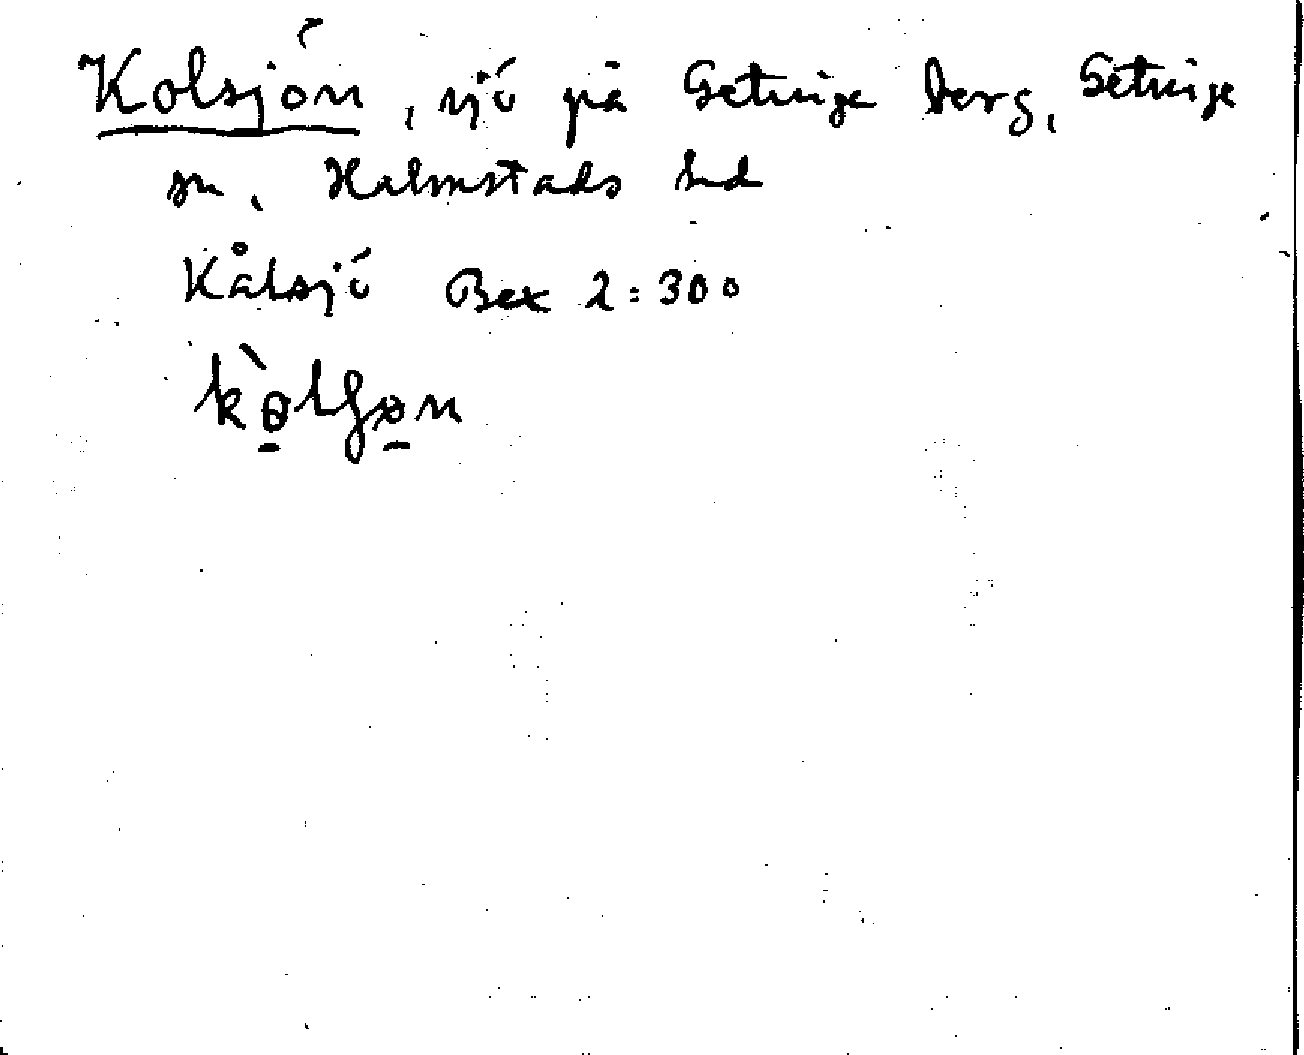 Kolsjön, sjö på Getinge berg, Getinge
sn, Halmstads hd
Kålsjö Bex 2:300